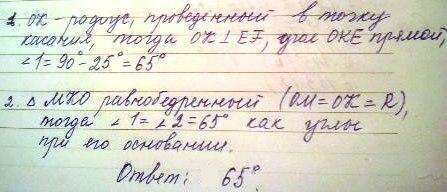 1. ОК - радиус, проведенный в точку
касания, тогда ОК ⊥ EF, угол ОКЕ прямой,
∠1 = 90° - 25° = 65°
2. △ МКО равнобедренный (ОМ = ОК = R),
тогда ∠1 = ∠2 = 65° как углы
при его основании.
Ответ: 65°